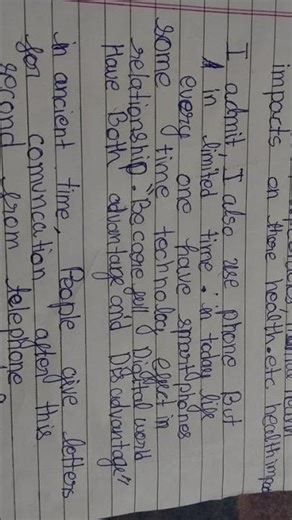 impacts on there health.etc health impac
I admit, I also use phone But
A in limited time. in today life
every one have smartphones
some time technoloy effect in
relationship. "Be carefull Digital world
Have Both advantage and Disadvantage"
in ancient time, People give letters
for comunication after this
second from telephone